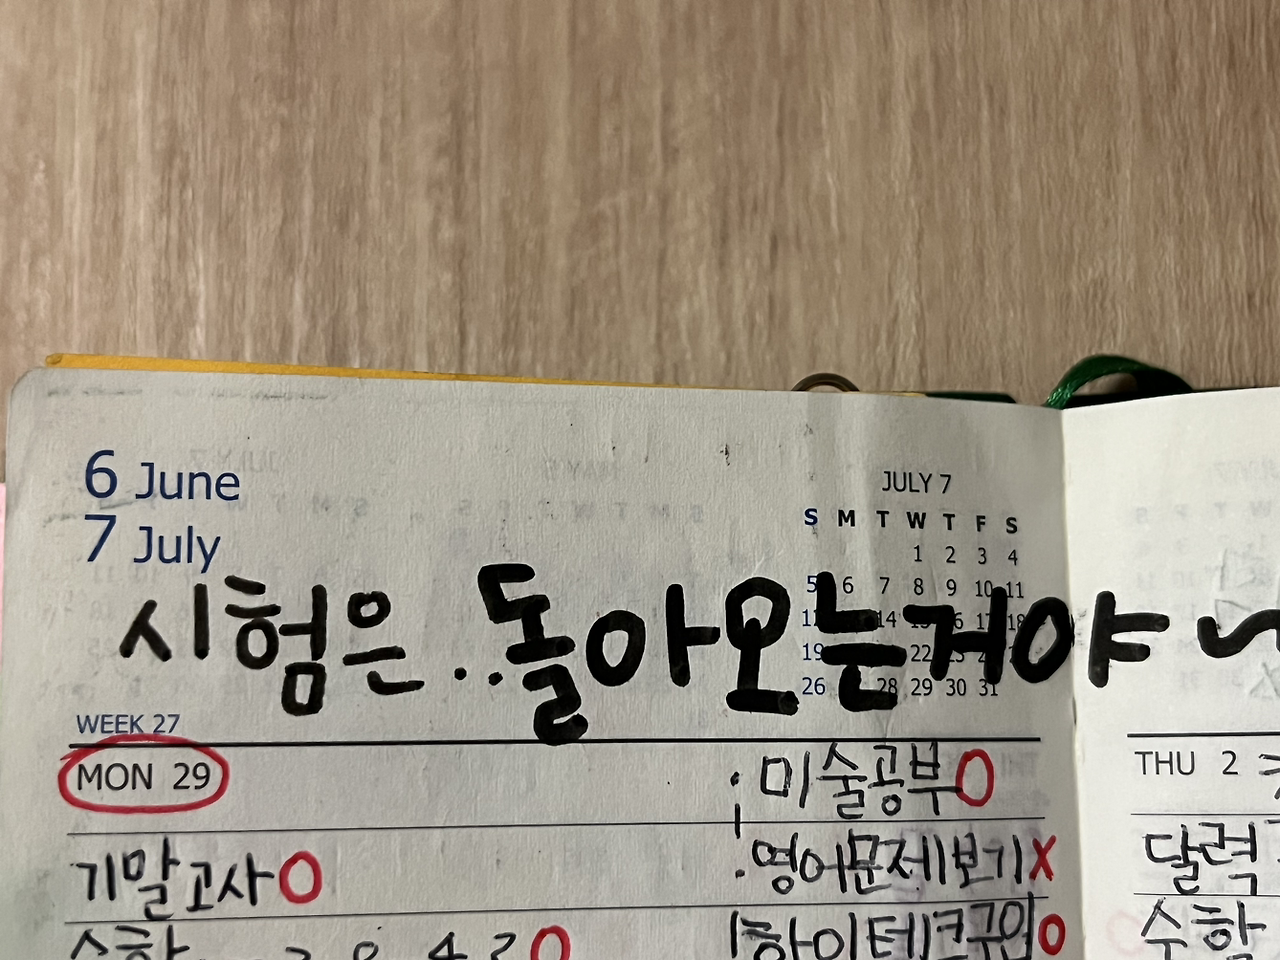 6 June
7 July
JULY 7
S M T W T F S
1 2 3 4
5 6 7 8 9 10 11
14 18
19 22
26 28 29 30 31
시험은..돌아오는거야~
WEEK 27
MON 29
·미술공부O
·영어문제보기X
기말고사O
수학
하이테크구원O
THU 2
달력
수학